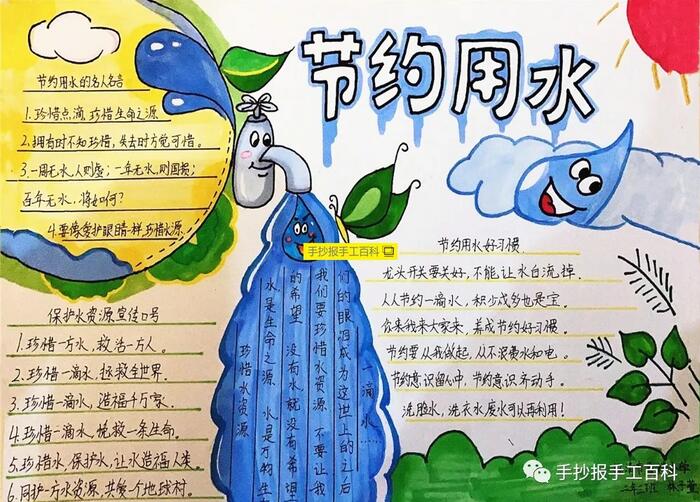 节约用水
节约用水的名人名言
1.珍惜点滴 珍惜生命之源
2.拥有时不知珍惜,失去时方觉可惜。
3.一周无水,人则虚;一年无水,则国损;
百年无水,将如何?
4.要像爱护眼睛一样珍惜水源
手抄报手工百科
节约用水好习惯
龙头开关要关好,不能让水白流掉.
人人节约一滴水,积少成多也是宝。
你来我来大家来,养成节约好习惯。
节约要从我做起,从不浪费水和电。
节约意识留心中,节约意识齐动手。
洗脸水,洗衣水废水可以再利用!
保护水资源宣传口号
1.珍惜一方水,救活一方人。
2.珍惜一滴水,拯救全世界.
3.珍惜一滴水,造福千万家.
4.珍惜一滴水,挽救一条生命。
5.珍惜水,保护水,让水造福人类。
6.同护一方水资源,共爱一个地球村。
一滴水……
们的眼泪成为这世上的之后
我们要珍惜水资源 不要让我
的希望 没有水就没有希望
水是生命之源 水是万物生
珍惜水资源
手抄报手工百科